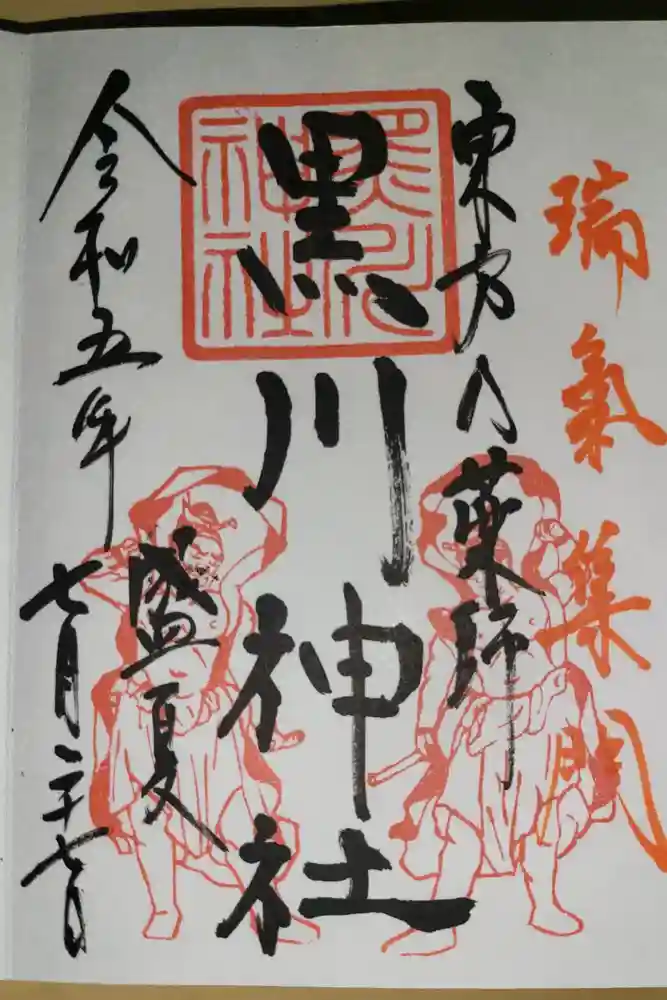 瑞氣集門
東方の薬師
黒川神社
黒川神社
盛夏
令和五年
七月二十七日